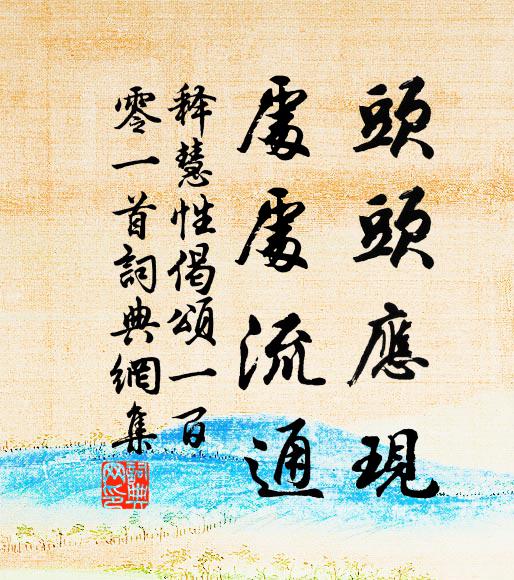 頭頭應現
處處流通
释慧性偈頌一百
零一首詞典網集